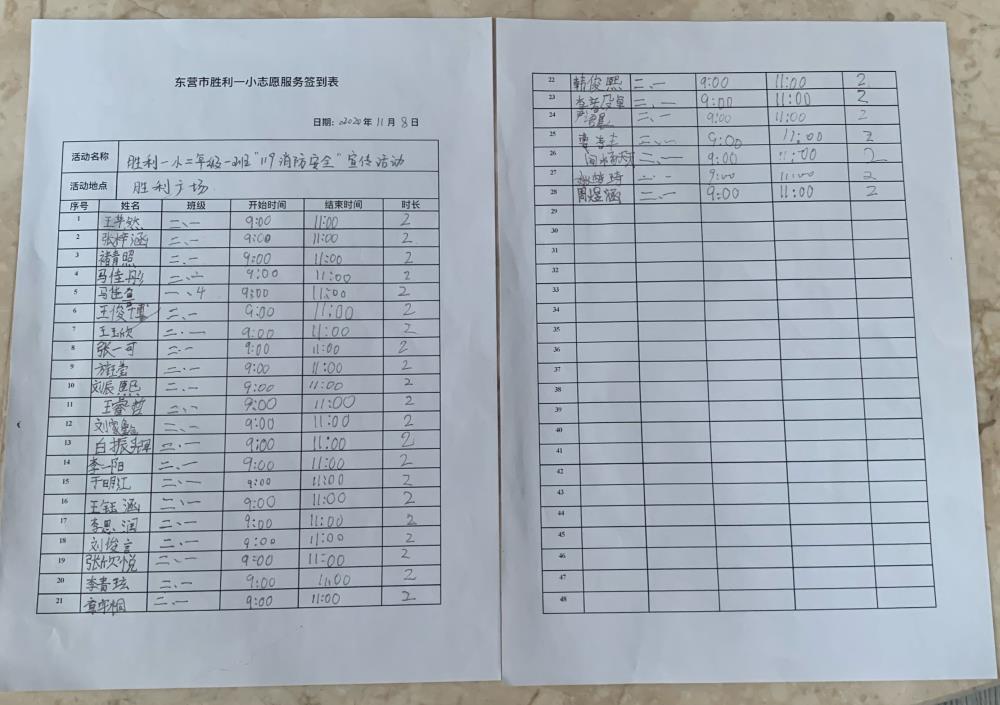 东营市胜利一小志愿服务签到表
日期: 2020 年 11 月 8 日
活动名称 胜利一小二年级一班"119消防安全"宣传活动
活动地点 胜利广场
序号 姓名 班级 开始时间 结束时间 时长
1 二、一 9:00 11:00 2
2 张梓涵 二、一 9:00 11:00 2
3 褚青照 二、一 9:00 11:00 2
4 马佳彤 9:00 11:00 2
5 一、4 9:00 11:00 2
6 王俊博 二、一 9:00 11:00 2
7 王玉欣 二、一 9:00 11:00 2
8 张一可 二、一 9:00 11:00 2
9 二、一 9:00 11:00 2
10 刘辰熙 二、一 9:00 11:00 2
11 王睿哲 二、一 9:00 11:00 2
12 二、一 9:00 11:00 2
13 白振 二、一 9:00 11:00 2
14 李一阳 二、一 9:00 11:00 2
15 于明江 二、一 9:00 11:00 2
16 王钰涵 二、一 9:00 11:00 2
17 李恩润 二、一 9:00 11:00 2
18 刘俊言 二、一 9:00 11:00 2
19 张欣悦 二、一 9:00 11:00 2
20 李青玹 二、一 9:00 11:00 2
21 章宇桐 二、一 9:00 11:00 2
22 韩俊熙 二、一 9:00 11:00 2
23 二、一 9:00 11:00 2
24 二、一 9:00 11:00 2
25 二、一 9:00 11:00 2
26 二、一 9:00 11:00 2
27 二、一 9:00 11:00 2
28 周煜涵 二、一 9:00 11:00 2
29
30
31
32
33
34
35
36
37
38
39
40
41
42
43
44
45
46
47
48